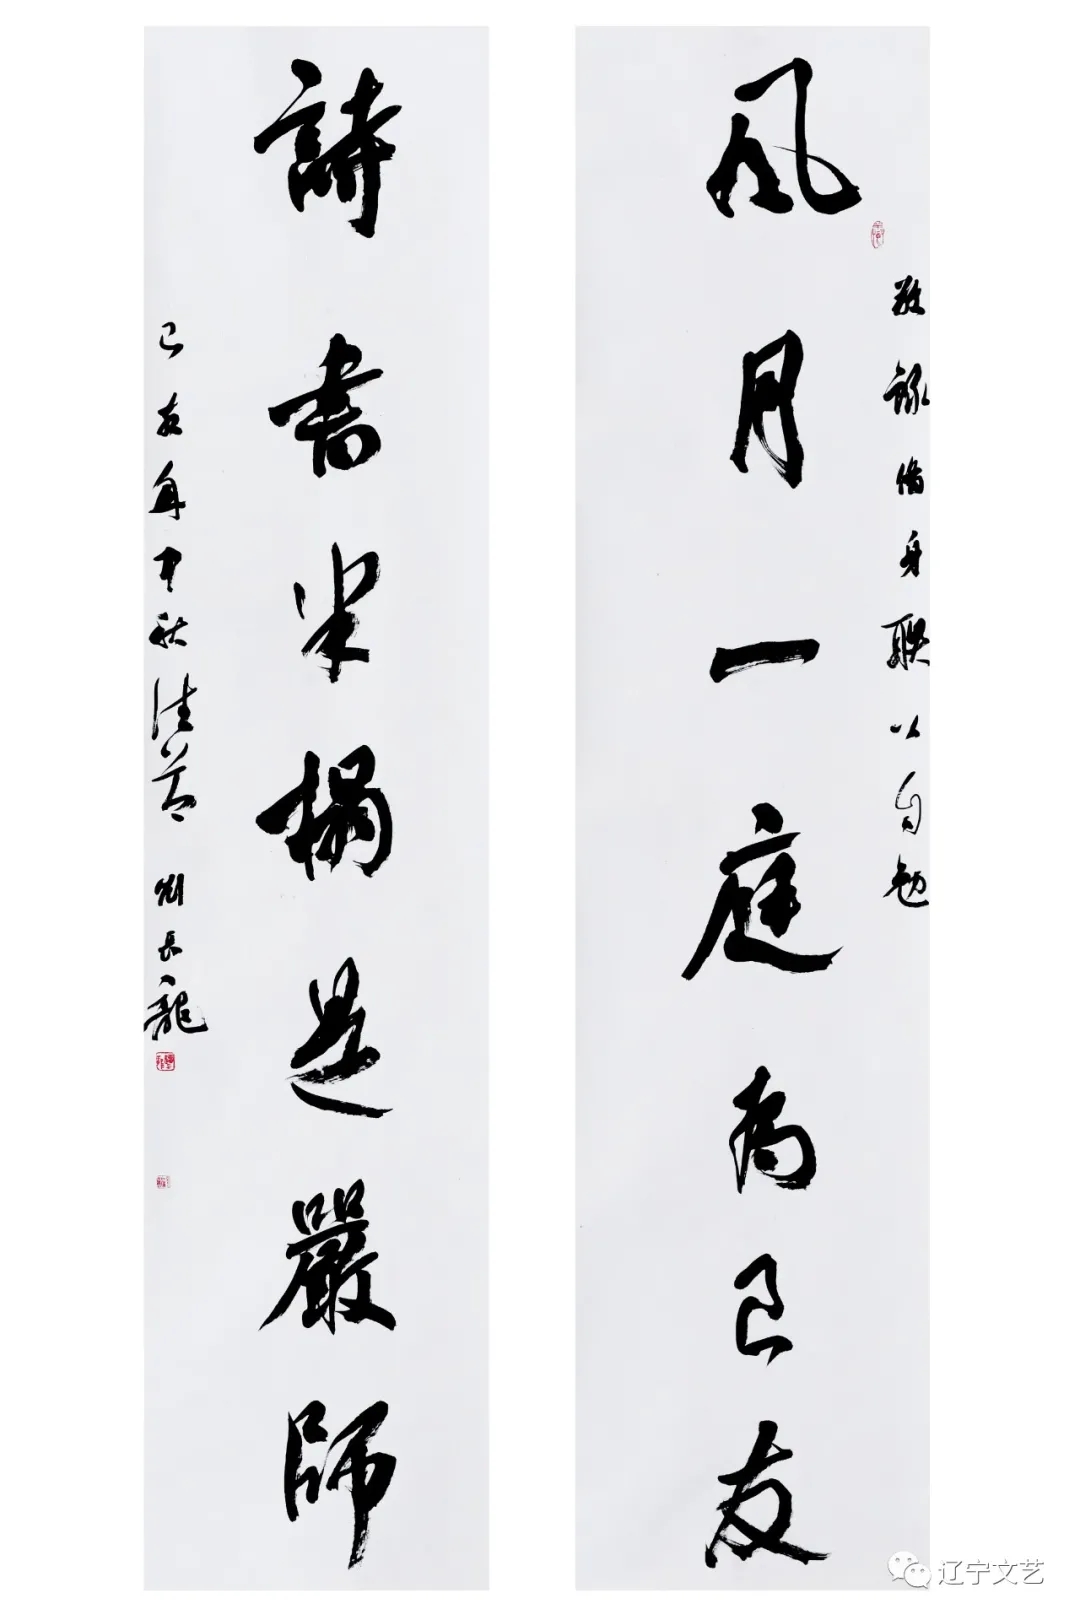 風月一庭為良友
録脩身聯以自勉
詩書半榻是嚴師
己亥年中秋佳節 劉長龍
辽宁文艺